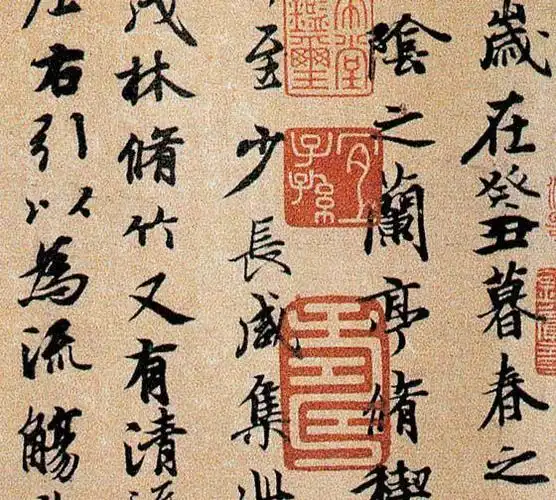 歲在癸丑暮春之
陰之蘭亭脩禊
至少長咸集此
茂林脩竹又有清流
左右引以為流觴
宜子孫